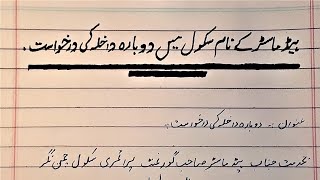 ہیڈ ماسٹر کے نام سکول میں دوبارہ داخلہ کی درخواست ۔
عنوان :۔ دوبارہ داخلہ کی درخواست۔
بخدمت جناب ہیڈ ماسٹر صاحب گورنمنٹ پرائمری سکول جمی نگر